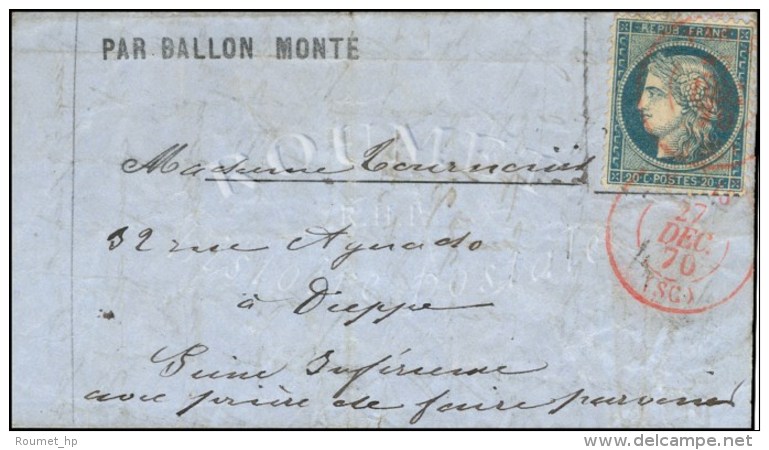 PAR BALLON MONTÉ
REPUB. FRANC.
20 C. POSTES 20 C.
27
DÉC.
70
(SC)
Madame
32 rue Aguado
à Dieppe
Seine Inférieure
avec prière de faire parvenir
ROUMET
Histoire Postale
Roumet_hp
www.delcampe.net